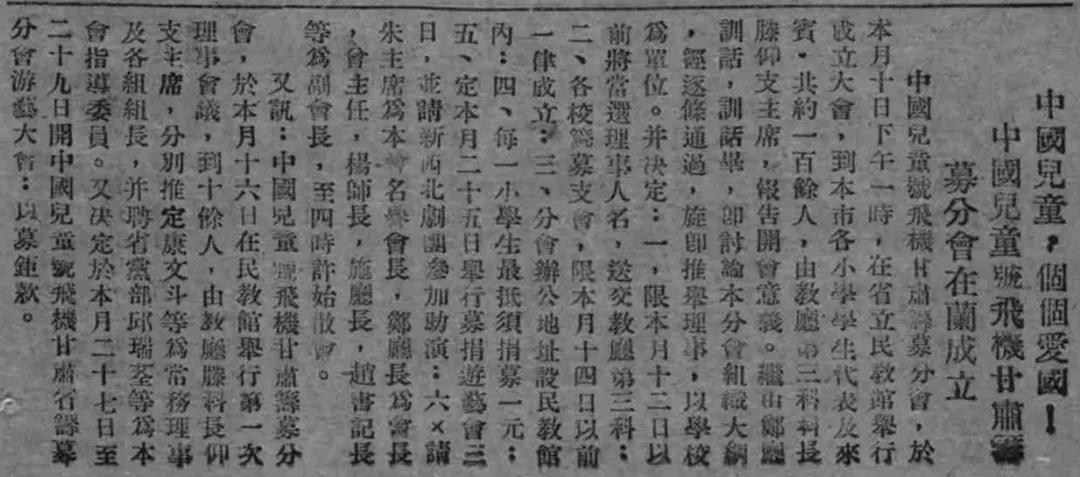 中國兒童，個個愛國！
中國兒童號飛機甘肅籌
募分會在蘭成立
中國兒童號飛機甘肅籌募分會，於
本月十日下午一時，在省立民教館舉行
成立大會，到本市各小學學生代表及來
賓·共約一百餘人，由教廳第三科科長
滕仰支主席，報告開會意義。繼由鄭廳
訓話，訓話畢，卽討論本分會組織大綱
，經逐條通過，旋卽推舉理事，以學校
爲單位。并決定：一，限本月十二日以
前將當選理事人名，送交教廳第三科：
二、各校籌募支會，限本月十四日以前
一律成立：三、分會辦公地址設民教館
內：四、每一小學生最抵須捐募一元：
五、定本月二十五日舉行募捐遊藝會三
日，並請新西北劇團參加助演：六×請
朱主席爲本會名譽會長，鄭廳長爲會長
，曾主任，楊師長，施廳長，趙書記長
等爲副會長，至四時許始散會。
又訊：中國兒童號飛機甘肅籌募分
會，於本月十六日在民教館舉行第一次
理事會議，到十餘人，由教廳滕科長仰
支主席，分別推定康文斗等爲常務理事
及各組組長，并聘省黨部邱瑞荃等爲本
會指導委員。又決定於本月二十七日至
二十九日開中國兒童號飛機甘肅省籌募
分會游藝大會：以募鉅款。